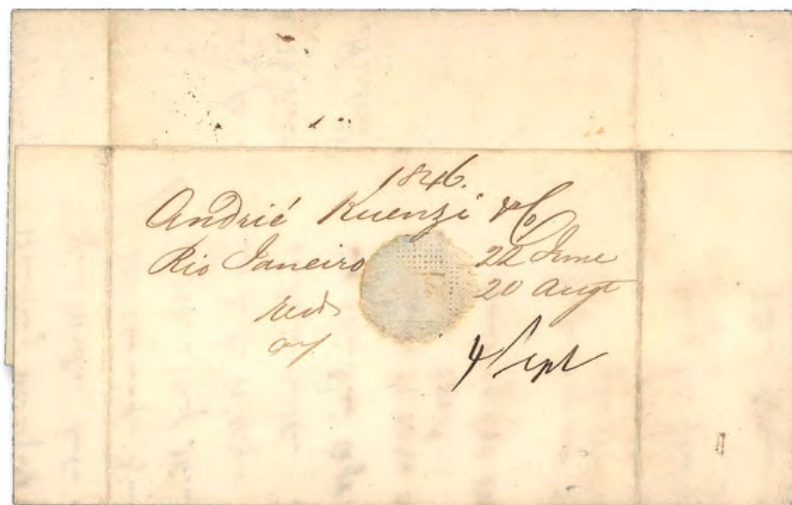 1846.
Andrié Kuenzi & Co
Rio Janeiro 22 June
recd 20 Augt
4 Sept